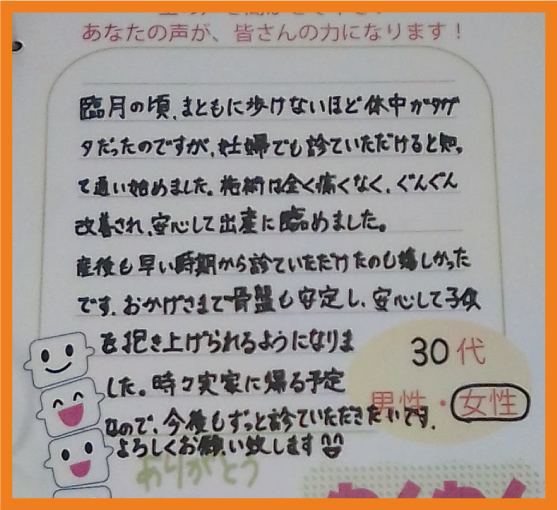 あなたの声が、皆さんの力になります！
臨月の頃、まともに歩けないほど体中がタガ
タだったのですが、妊婦でも診ていただけると知っ
て通い始めました。施術は全く痛くなく、ぐんぐん
改善され、安心して出産に臨めました。
産後も早い時期から診ていただけたのも嬉しかった
です。おかげさまで骨盤も安定し、安心して子供
を抱き上げられるようになりま
した。時々実家に帰る予定
なので、今後もずっと診ていただきたいです。
よろしくお願い致します
30代
男性・女性
ありがとう